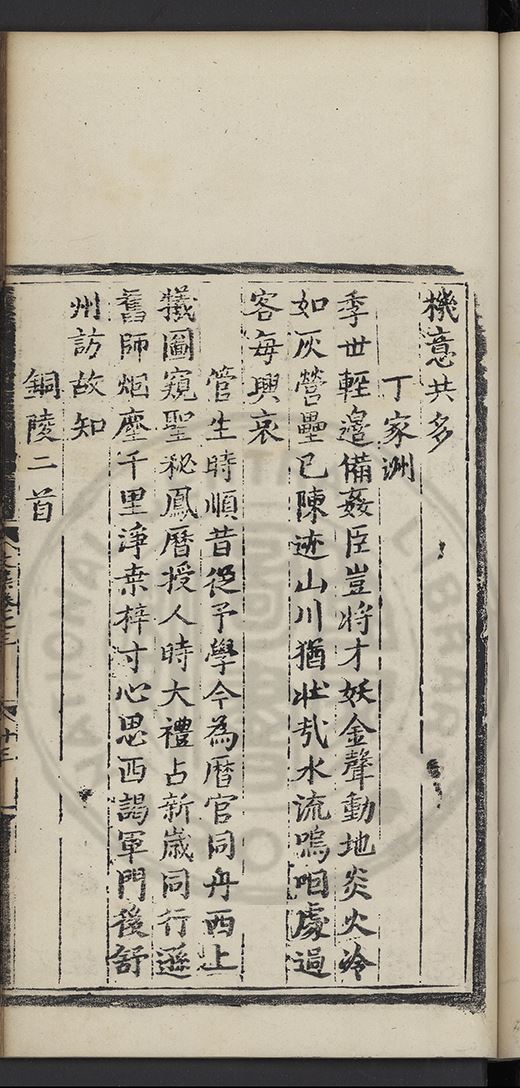 機意共多
丁家洲
季世輕邉備姦臣豈將才妖金聲動地炎火冷
如灰營壘已陳迹山川猶壯㢤水流嗚咽處過
客每興哀
管生時順昔從予學今為曆官同舟西上
犧圖窺聖秘鳳曆授人時大禮占新歲同行遜
舊師烟塵千里淨桑梓寸心思西謁軍門後舒
州訪故知
銅陵二首